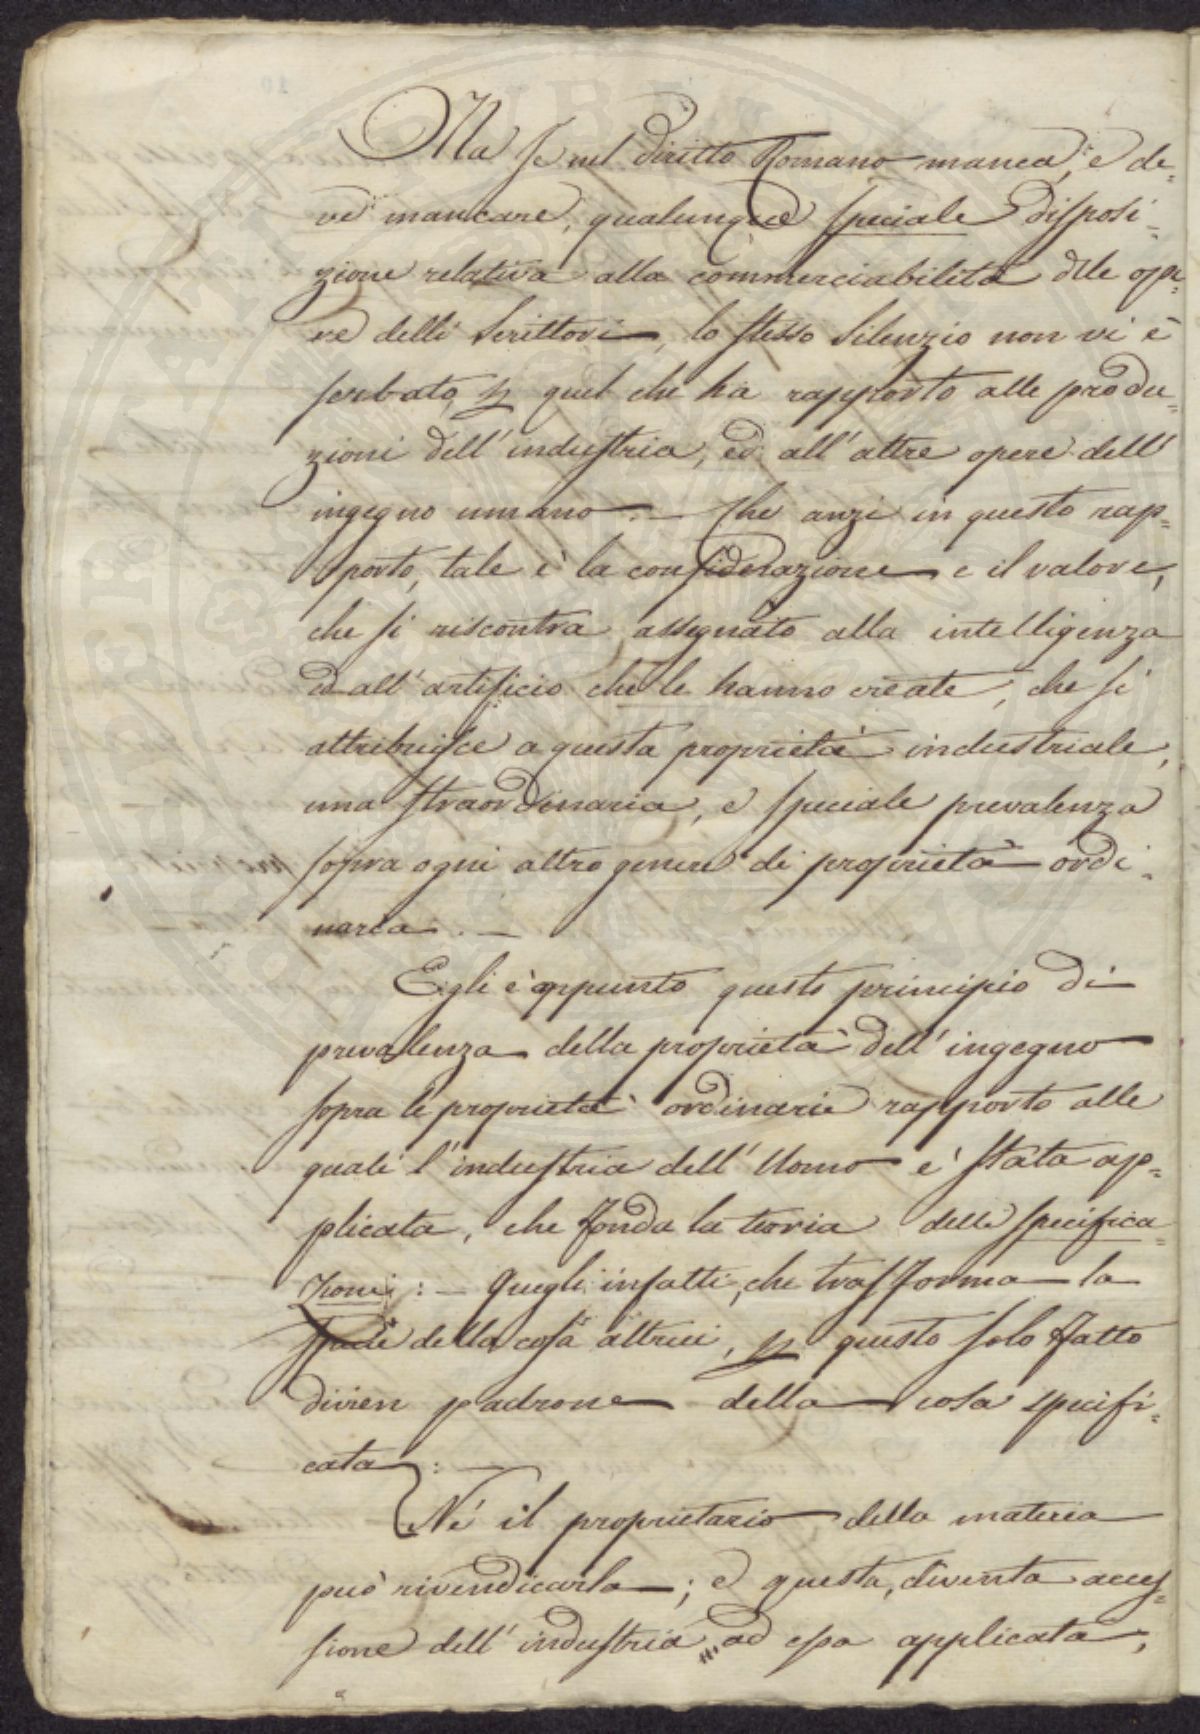 Ma se nel diritto Romano manca, e de=
ve mancare, qualunque speciale disposi=
zione relativa alla commerciabilità delle ope=
re delli Scrittori, lo stesso silenzio non vi è
serbato, p quel che ha rapporto alle produ=
zioni dell' industria, ed all' altre opere dell'
ingegno umano: — Che anzi in questo rap=
porto, tale è la considerazione e il valore,
che si riscontra assegnato alla intelligenza
ed all' artificio che le hanno create, che si
attribuisce a questa proprietà industriale,
una straordinaria, e speciale prevalenza
sopra ogni altro genere di proprietà ordi=
naria. —
Egli è appunto questo principio di
prevalenza della proprietà dell' ingegno
sopra le proprietà ordinarie rapporto alle
quali l' industria dell' Uomo è stata ap=
plicata, che fonda la teoria delle specifica=
zioni: — Quegli infatti, che trasforma la
specie della cosa altrui, p questo solo fatto
divien padrone della cosa specifi=
cata: —
Nè il proprietario della materia
può rivendicarla; e questa, diventa acces=
sione dell' industria ad essa applicata,